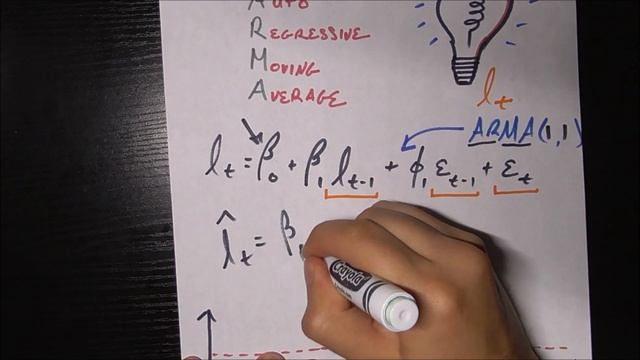 AUTO
REGRESSIVE
MOVING
AVERAGE
l_t
ARMA(1,1)
l_t = β_0 + β_1 l_{t-1} + ϕ_1 ε_{t-1} + ε_t
l̂_t = β
Crayola